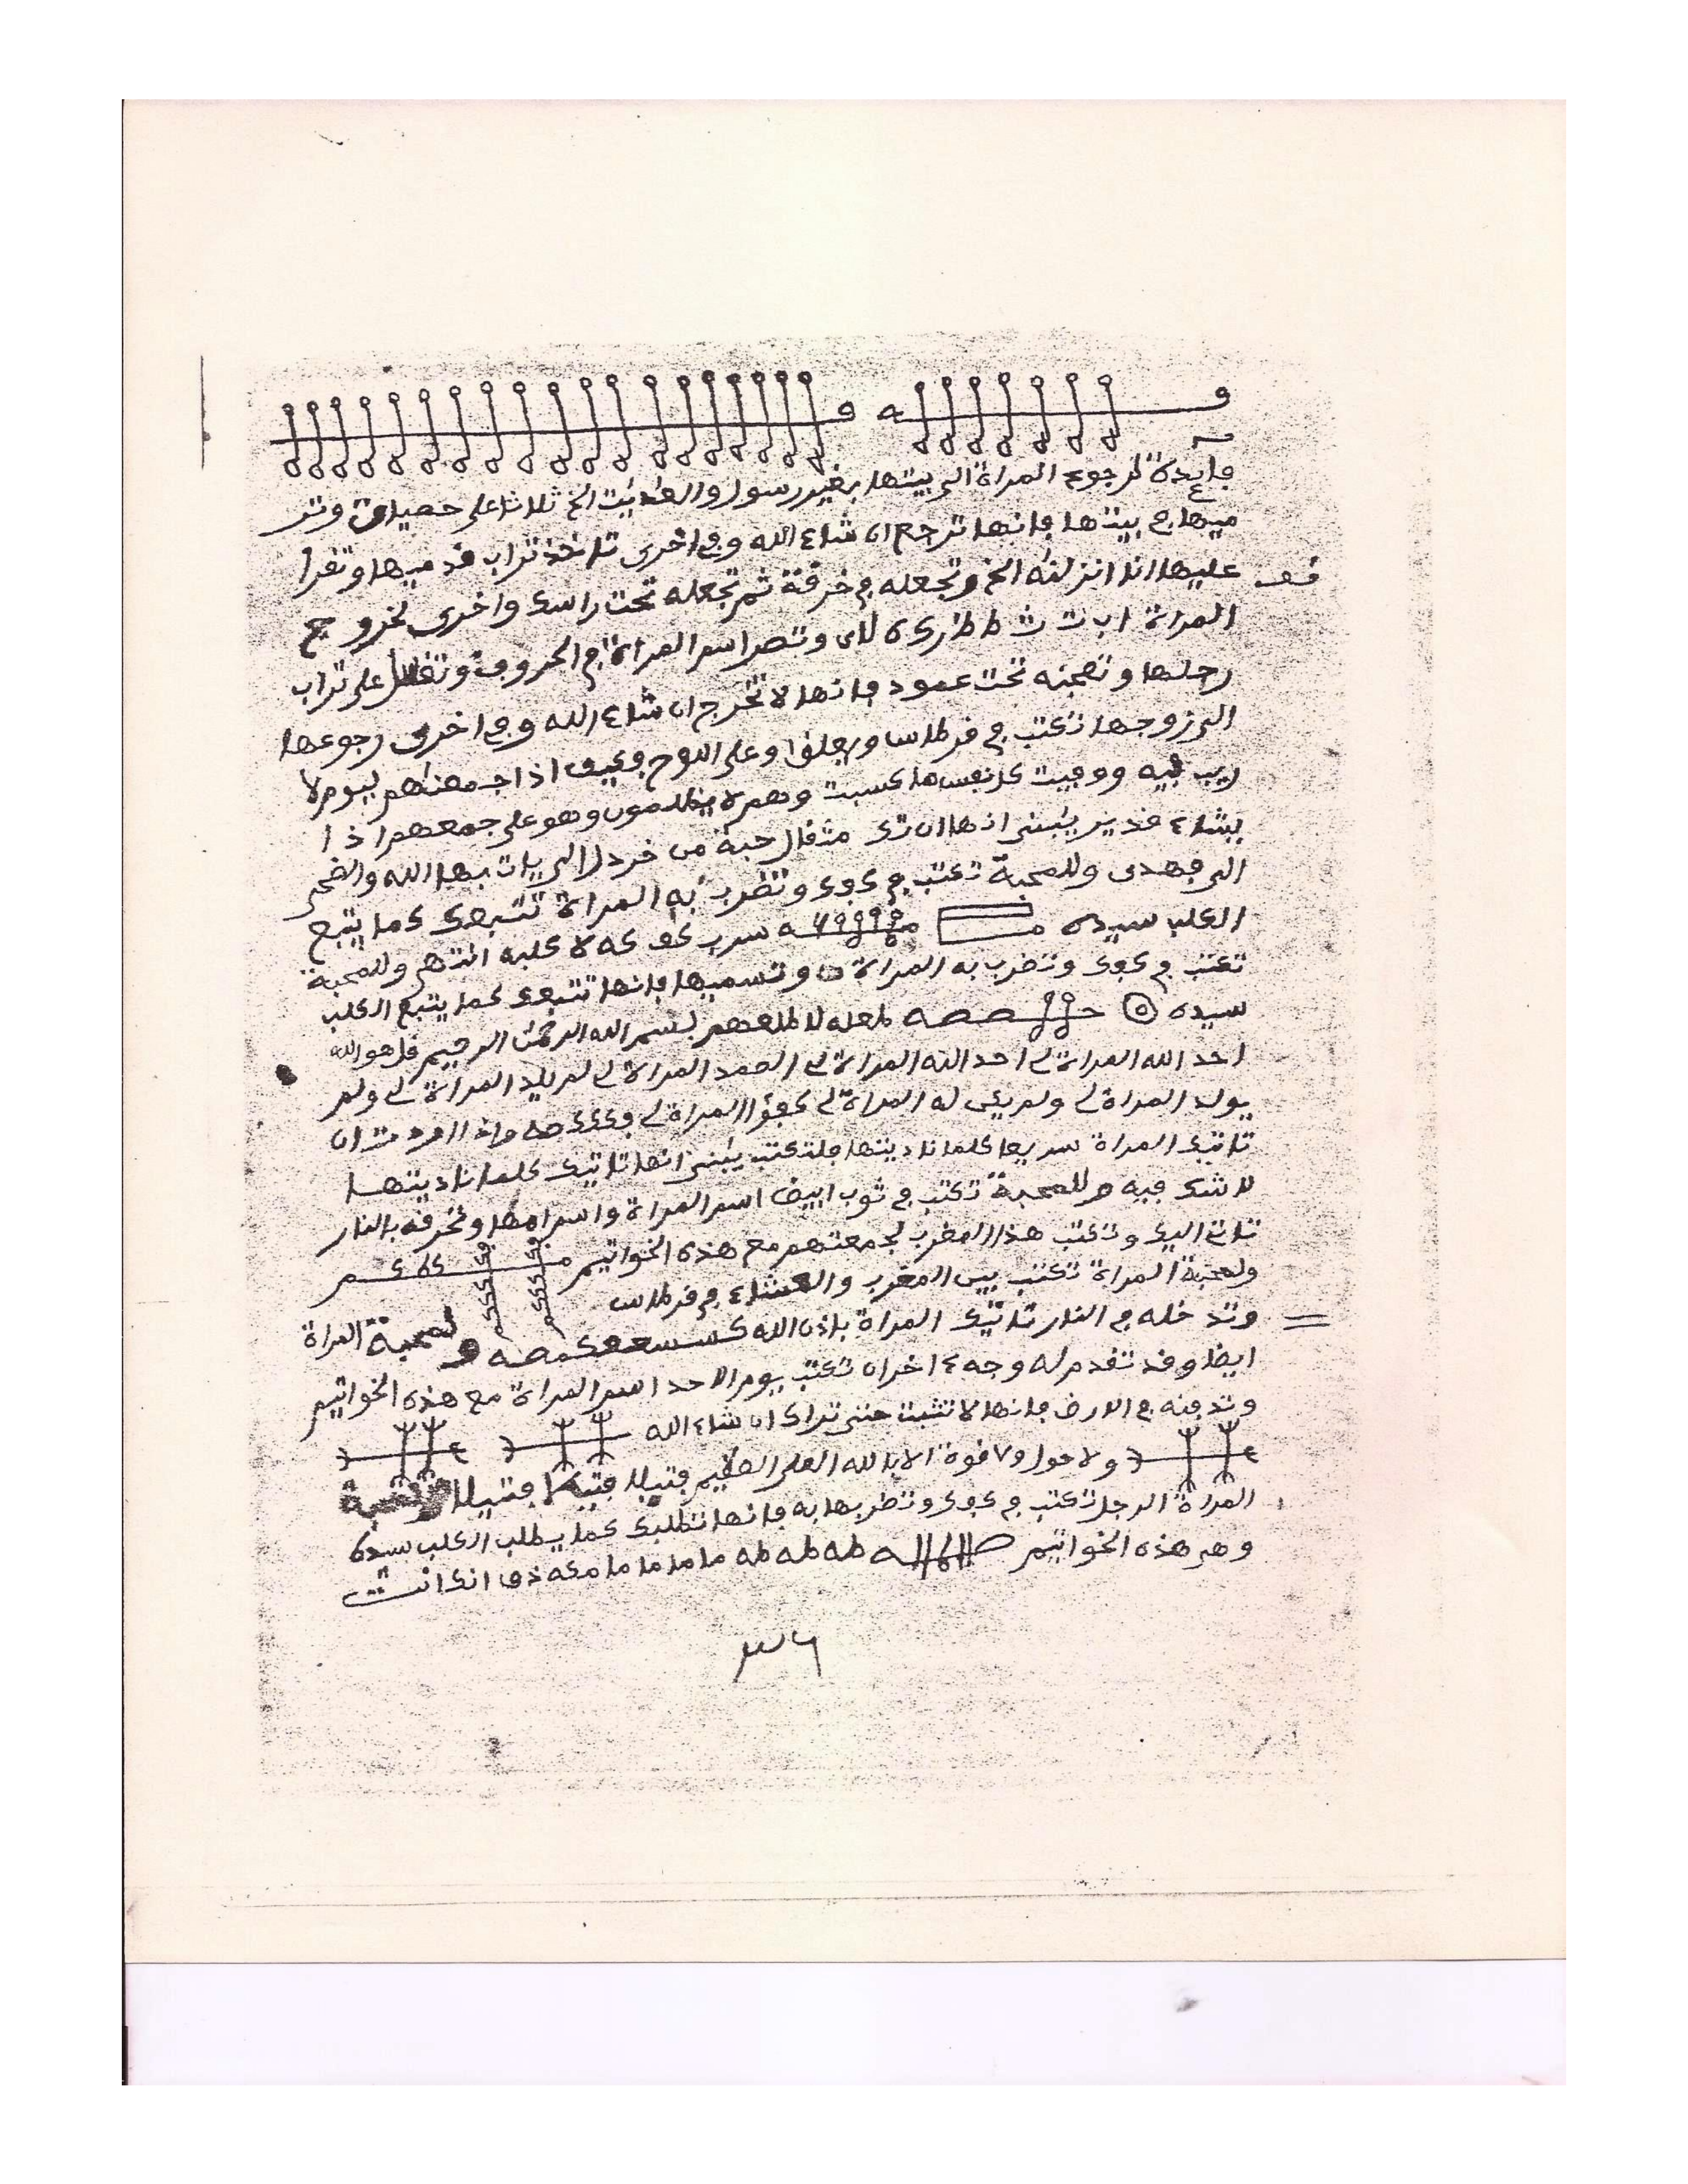 فايدة لرجوع المراة الى بيتها بغير رسول والعديت الخ ثلاثا على حصيات وتر
ميها في بيتها فانها ترجع ان شاء الله وفي اخرى تاخذ تراب قدميها وتقرا
عليها انا انزلنه الخ وتجعله في خرقة ثم تجعله تحت راسك واخرى لخروج
المراة ا ب ت ث ط ظ ر ك ه لای وتصر اسم المراة في الحروف على تراب
رجلها تحت عمود فانها لا تخرج ان شاء الله وفي اخرى رجوعها
الى زوجها تكتب في قرطاس ويعلق او على اللوح فكيف اذا جمعنهم ليوم لا
ريب فيه ووفيت كل نفس ما كسبت وهم لا يظلمون وهو على جمعهم اذا
يشاء قدير يبنى انها ان تك مثقال حبة من خردل الى يات بها الله والضحى
الى فهدى وللمحبة تكتب في كفك وتضرب به المراة تتبعك كما يتبع
الكلب سيده سرب كف كه لا كلبه انتهى وللمحبة
تكتب في كفك وتضرب به المراة وتسميها فانها تتبعك كما يتبع الكلب
سيده بسم الله الرحمن الرحيم قل هو الله
احد الله المراة لى احد الله المراة لى الصمد المراة لى لم يلد المراة لى ولم
يولد المراة لى ولم يكن له المراة لى كفوا المراة لى واذا اردت ان
تاتيك المراة سريعا كلما ناديتها فلتكتب يبنى انها تاتيك كلما ناديتها
لا شك فيه وللمحبة تكتب في ثوب ابيض اسم المراة واسم امها وتحرقه بالنار
تات اليك وتكتب هذا المغرب لجمعتهم مع هذه الخواتيم
ولمحبة المراة تكتب بين المغرب والعشاء في قرطاس
وتدخله في النار تاتيك المراة باذن الله ولمحبة المراة
ايضا وقد تقدم له وجه ء اخر ان تكتب يوم الاحد اسم المراة مع هذه الخواتيم
وتدفنه في الارض فانها لا تثبت حتى تراك ان شاء الله
ولا حول ولا قوة الا بالله العلي العظيم فتيلا فتيلا فتيلا
المراة الرجل تكتب في كفك وتضربها به فانها تطلبك كما يطلب الكلب سيده
وهي هذه الخواتيم طه طه طه ما ما ما ما مكه ذق انك انت
٣٦